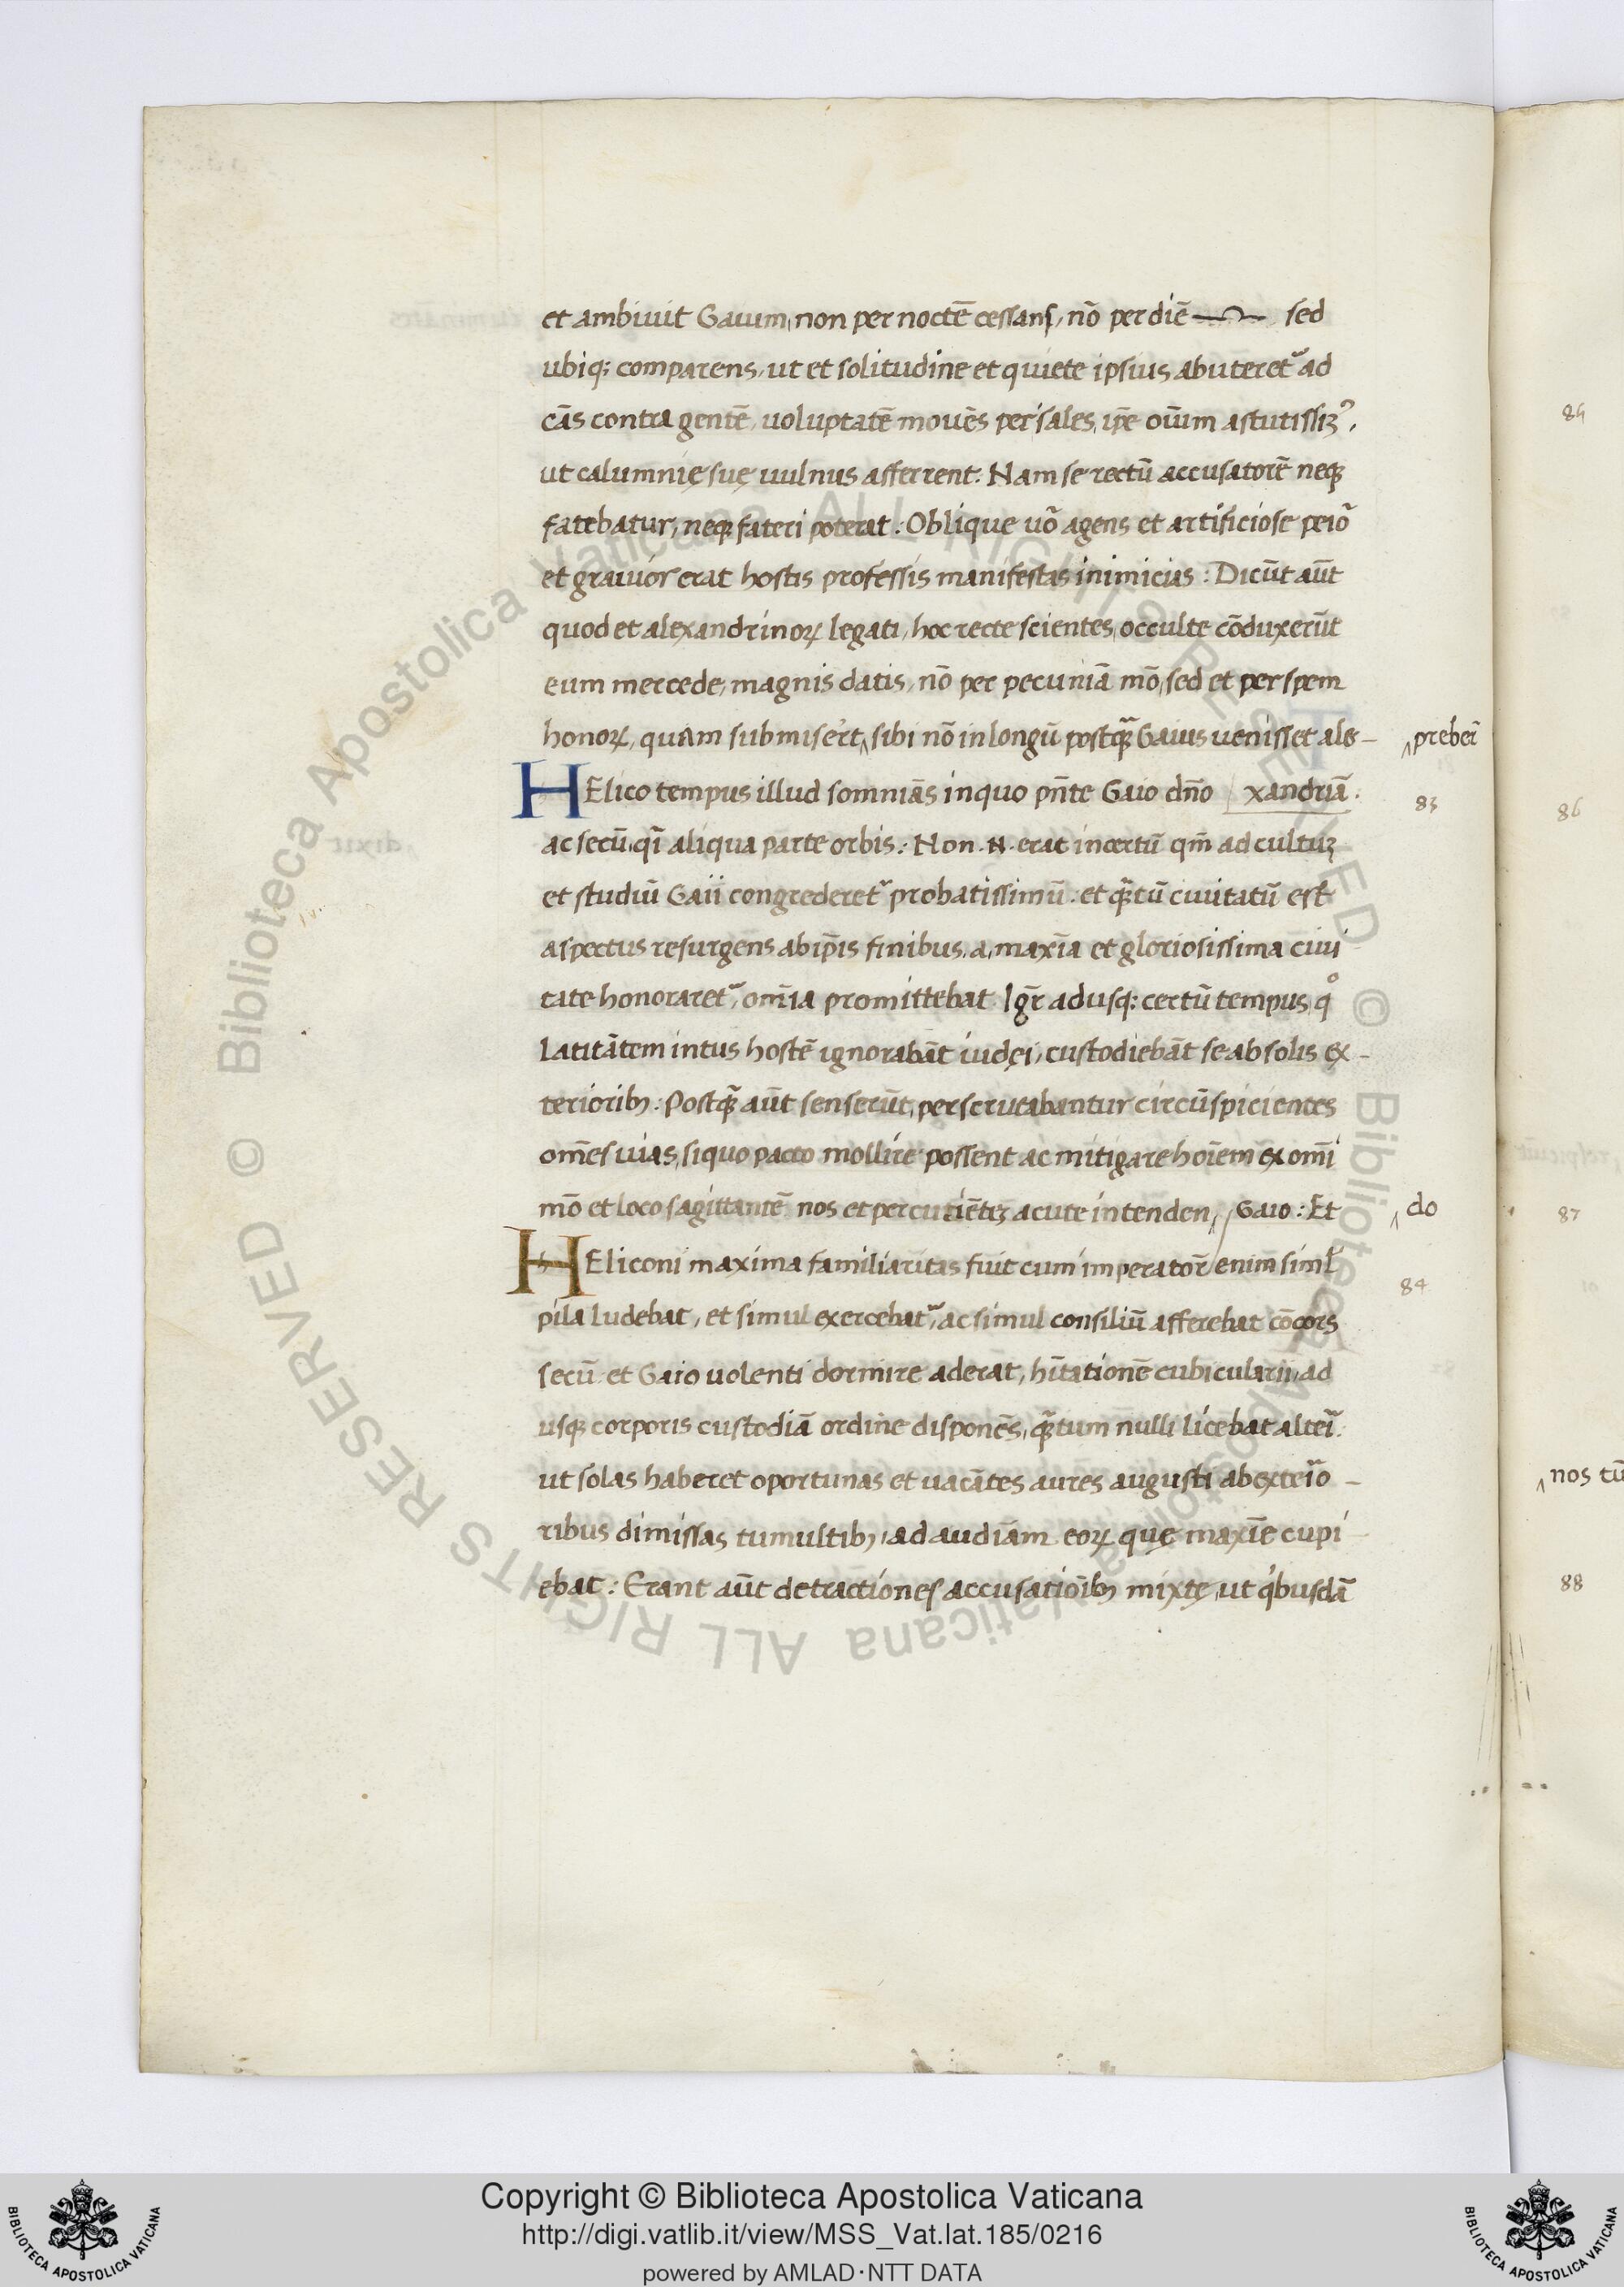 et ambiuit Gaium, non per noctē cessans, nō per diē sed
ubiq; comparens, ut et solitudine et quiete ipsius abuteret᷑ ad
cās contra gentē, uoluptatē mouēs per sales, ip̄e oīum astutissiꝫ,
ut calumnię suę uulnus afferrent: Nam se rectū accusatorē neqꝫ
fatebatur, neqꝫ fateri poterat: Oblique uō agens et artificiose peiō
et grauior erat hostis professis manifestas inimicias: Dicūt aūt
quod et alexandrinoꝝ legati, hoc recte scientes, occulte cōduxerūt
eum mercede, magnis datis, nō per pecuniā mō, sed et per spem
honoꝝ, quam submiser̄t, ‸ sibi nō in longū postqꝫ̄ Gaius uenisset ale- ‸ preber̄i
HElico tempus illud somniās in quo pn̄te Gaio dn̄o xandriā. 83
ac secū, qi aliqua parte orbis: Non .N. erat incertū qm̄ ad cultuꝫ
et studiū Gaii congrederet᷑ probatissimū: et qꝫ̄tū ciuitatū est
aspectus resurgens ab ip̄is finibus, a, maxīa et gloriosissima ciui
tate honoraret᷑, omīa promittebat. Igr̄ adusq; certū tempus, qͦ
latitātem intus hostē ignorabāt iudęi, custodiebāt se ab solis ex-
terioribꝫ: Postqꝫ̄ aūt senserūt, perscrutabantur circūspicientes
omēs uias, si quo pacto mollire possent ac mitigare hoīem ex omī
mō et loco sagittantē nos et percutiēteꝫ acute intenden ‸ Gaio: Et ‸ do
HEliconi maxima familiaritas fuit cum imperatōr enim siml̄ 84
pila ludebat, et simul exercebat᷑, ac simul consiliū afferebat cōcors
secū et Gaio uolenti dormire aderat, hītationē cubicularii, ad
usqꝫ corporis custodiā ordine disponēs, qꝫ̄tum nulli licebat alterī
ut solas haberet oportunas et uacātes aures augusti ab exterīo-
ribus dimissas tumultibꝫ, ad audiām eoꝝ quę maxīe cupi
ebat: Erant aūt detractiones accusatiōibꝫ mixtę, ut qͥbusdā
85
86
87
‸ nos tū
88
Copyright © Biblioteca Apostolica Vaticana
http://digi.vatlib.it/view/MSS_Vat.lat.185/0216
powered by AMLAD·NTT DATA
BIBLIOTECA APOSTOLICA VATICANA
BIBLIOTECA APOSTOLICA VATICANA
© Biblioteca Apostolica Vaticana ALL RIGHTS RESERVED
© Biblioteca Apostolica Vaticana ALL RIGHTS RESERVED